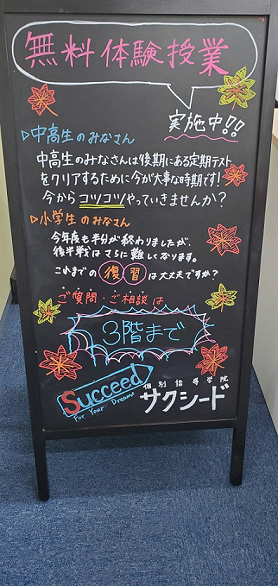 無料体験授業
実施中!!
▷中高生のみなさん
中高生のみなさんは後期にある定期テスト
をクリアするために今が大事な時期です!
今からコツコツやっていきませんか?
▷小学生のみなさん
今年度も半分が終わりましたが、
後半戦はさらに難しくなります。
これまでの復習は大丈夫ですか?
ご質問・ご相談は
3階まで
Succeed
For Your Dreams
個別指導学院
サクシード